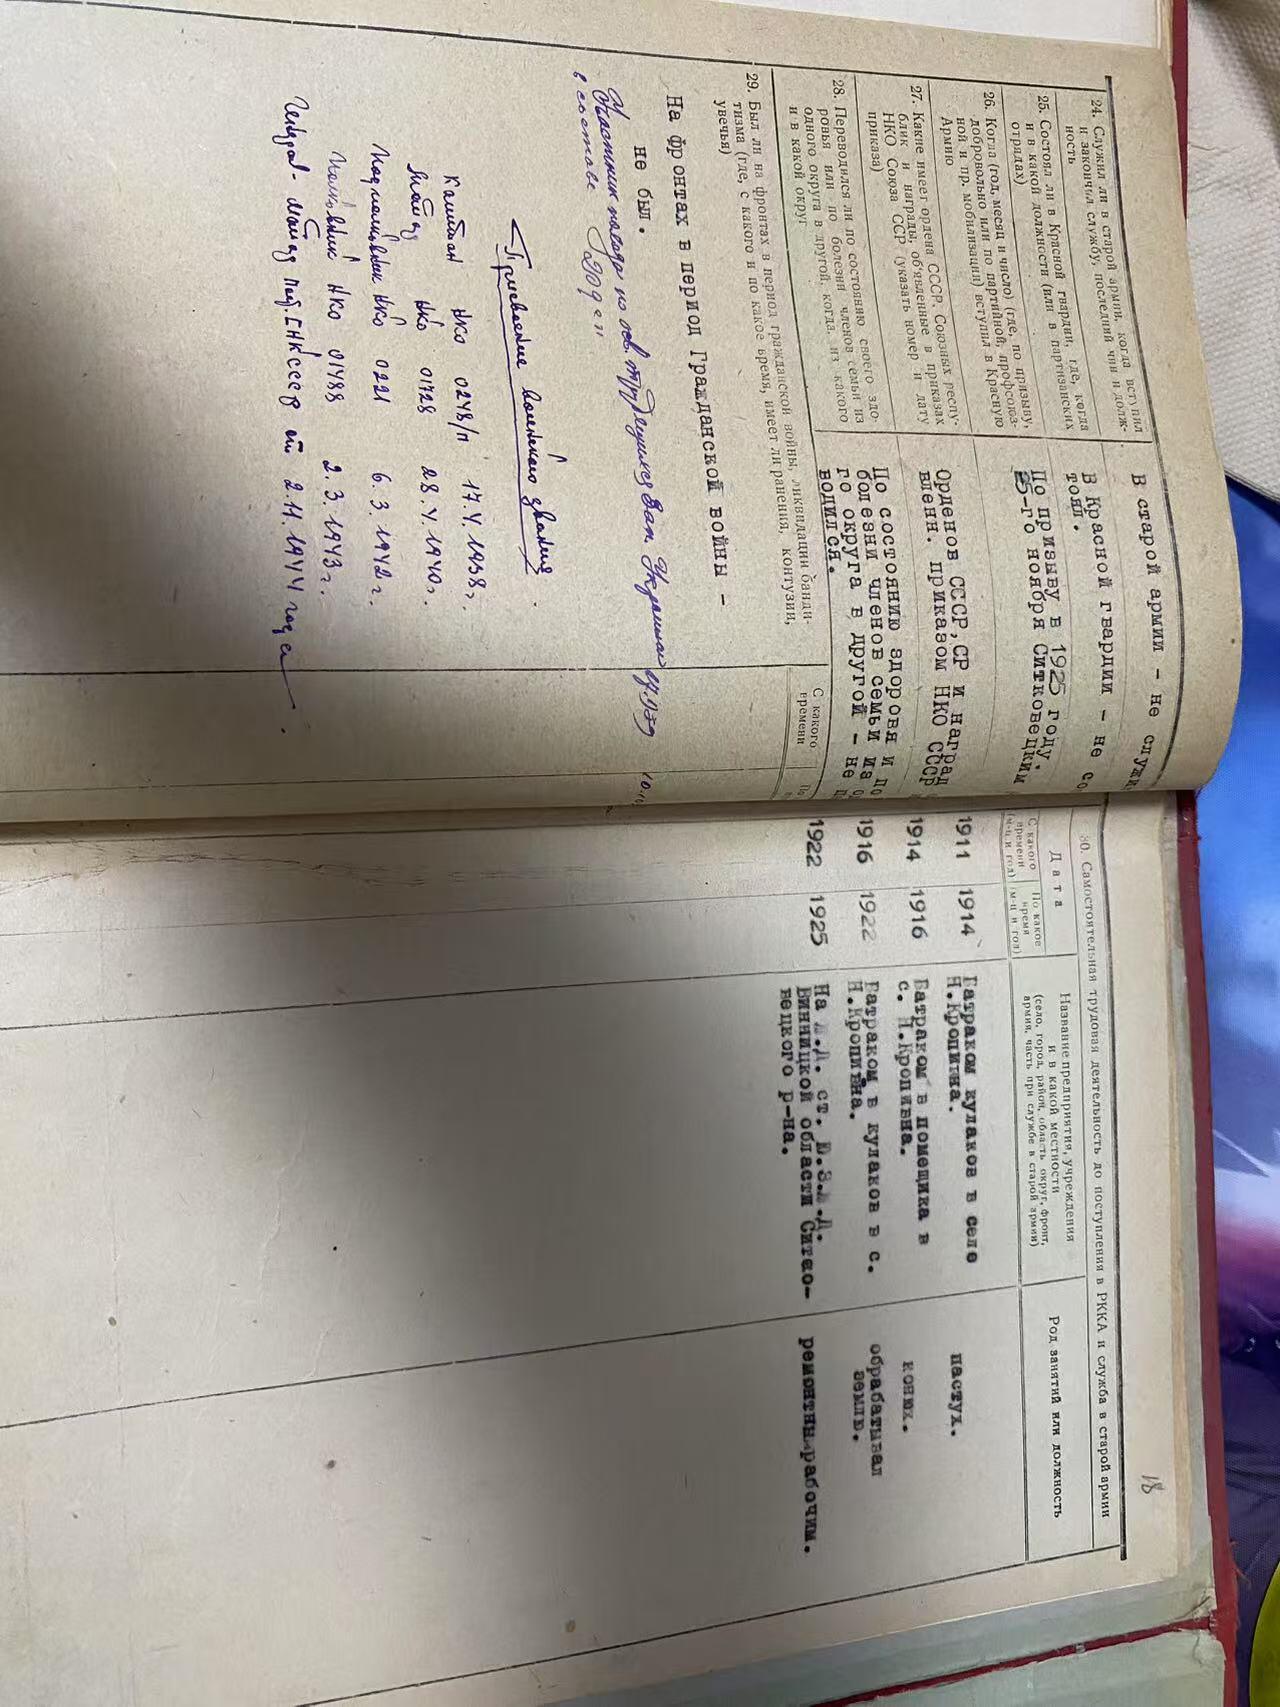 24. Служил ли в старой армии, когда вступил
и закончил службу, последний чин и долж-
ность
В старой армии - не служи
25. Состоял ли в Красной гвардии, где, когда
и в какой должности (или в партизанских
отрядах)
В Красной гвардии - не со
тоял.
26. Когда (год, месяц и число) (где, по призыву,
добровольно или по партийной, профсоюз-
ной и пр. мобилизации) вступил в Красную
Армию
По призыву в 1925 году;
25-го ноября Ситковецким
27. Какие имеет ордена СССР, Союзных респу-
блик и награды, об'явленные в приказах
НКО Союза ССР (указать номер и дату
приказа)
Орденов СССР,СР и наград
вленн. приказом НКО СССР
28. Переводился ли по состоянию своего здо-
ровья или по болезни членов семьи из
одного округа в другой, когда, из какого
и в какой округ
По состоянию здоровья и по
болезни членов семьи из о
го округа в другой - не п
водился.
29. Был ли на фронтах в период гражданской войны, ликвидации банди-
тизма (где, с какого и по какое время, имеет ли ранения, контузии,
увечья)
С какого
времени
По
На фронтах в период Гражданской войны -
не был.
Участник похода по осв. трудящихся Зап. Украины 17.9.39
в составе
Присвоение воинского звания
Капитан НКО 0248/п 17.V.1938г.
Майор НКО 01728 28.V.1940г.
Подполковник НКО 0221 6.3.1942г.
Полковник НКО 01488 2.3.1943г.
Генерал-майор Пост. СНК СССР от 2.11.1944 года
18
30. Самостоятельная трудовая деятельность до поступления в РККА и служба в старой армии
Дата
С какого
времени
(м-ц и год)
По какое
время
(м-ц и год)
Название предприятия, учреждения
и в какой местности
(село, город, район, область, округ, фронт,
армия, часть при службе в старой армии)
Род занятий или должность
1911 1914 Батраком кулаков в селе пастух.
Н.Кропивна.
1914 1916 Батраком в помещика в конюх.
с. Н.Кропивна.
1916 1922 Батраком в кулаков в с. обрабатывал
Н.Кропивна. землю.
1922 1925 На ж.Д. ст. Ю.З.ж.Д. ремонтн.рабочим.
Винницкой области Ситко-
вецкого р-на.